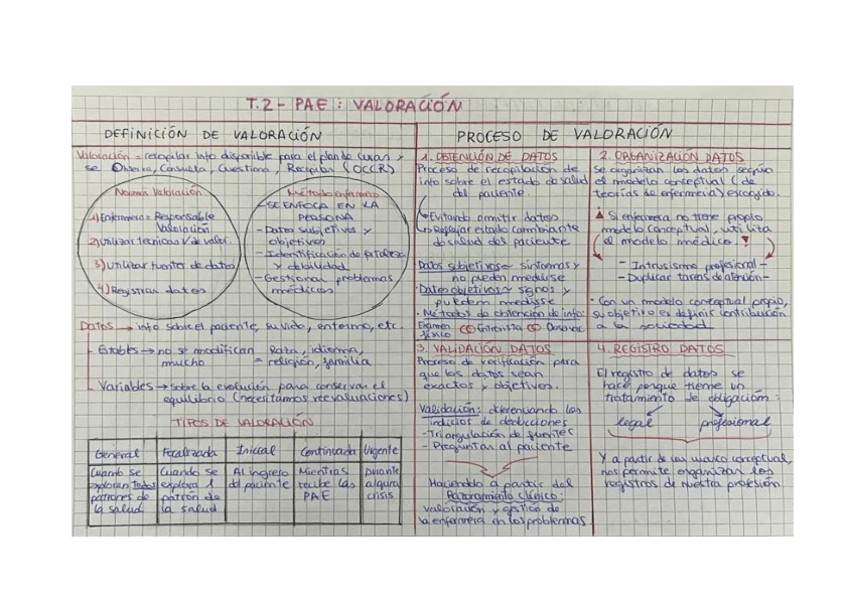 T.2 - PAE : VALORACIÓN
DEFINICIÓN DE VALORACIÓN
Valoración = recopilar info disponible para el plan de curas y
se Observa, Consulta, Cuestiona, Recopila (OCCR)
Normas Valoración
1) Enfermera = Responsable
Valoración
2) Utilizar técnicas
3) Utilizar fuentes de datos
4) Registrar datos
Método enfermero
- SE ENFOCA EN LA
PERSONA
- Datos subjetivos y
objetivos
- Identificación de fortaleza
y debilidad
- Gestionar problemas
médicos
Datos → info sobre el paciente, su vida, entorno, etc.
- Estables → no se modifican mucho = Raza, idioma, religión, familia
- Variables → sobre la evolución para conservar el
equilibrio (necesitamos reevaluaciones)
TIPOS DE VALORACIÓN
General Focalizada Inicial Continuada Urgente
Cuando se exploran todos patrones de la salud
Cuando se explora 1 patrón de la salud
Al ingreso del paciente
Mientras recibe las PAE
Durante alguna crisis
PROCESO DE VALORACIÓN
1. OBTENCIÓN DE DATOS
Proceso de recopilación de
info sobre el estado de salud
del paciente.
Evitando omitir datos
Reflejar estado cambiante
de salud del paciente
Datos subjetivos ~ síntomas y
no pueden medirse
· Datos objetivos ~ signos y
pueden medirse
· Métodos de obtención de info:
Examen físico Entrevista Observac.
2. ORGANIZACIÓN DATOS
Se organizan los datos según
el modelo conceptual (de
teorías de enfermería) escogido.
Si enfermera no tiene propio
modelo conceptual, utiliza
el modelo médico.
- Intrusismo profesional -
- Duplicar tareas de atención -
· Con un modelo conceptual propio,
su objetivo es definir contribución
a la sociedad
3. VALIDACIÓN DATOS
Proceso de verificación para
que los datos sean
exactos y objetivos.
Validación: diferenciando los
indicios de deducciones
- Triangulación de fuentes
- Preguntar al paciente
Haciendo a partir del
Razonamiento clínico:
valoración y gestión de
la enfermera en los problemas
4. REGISTRO DATOS
El registro de datos se
hace porque tiene un
tratamiento de obligación:
legal profesional
Y a partir de un marco conceptual,
nos permite organizar los
registros de nuestra profesión